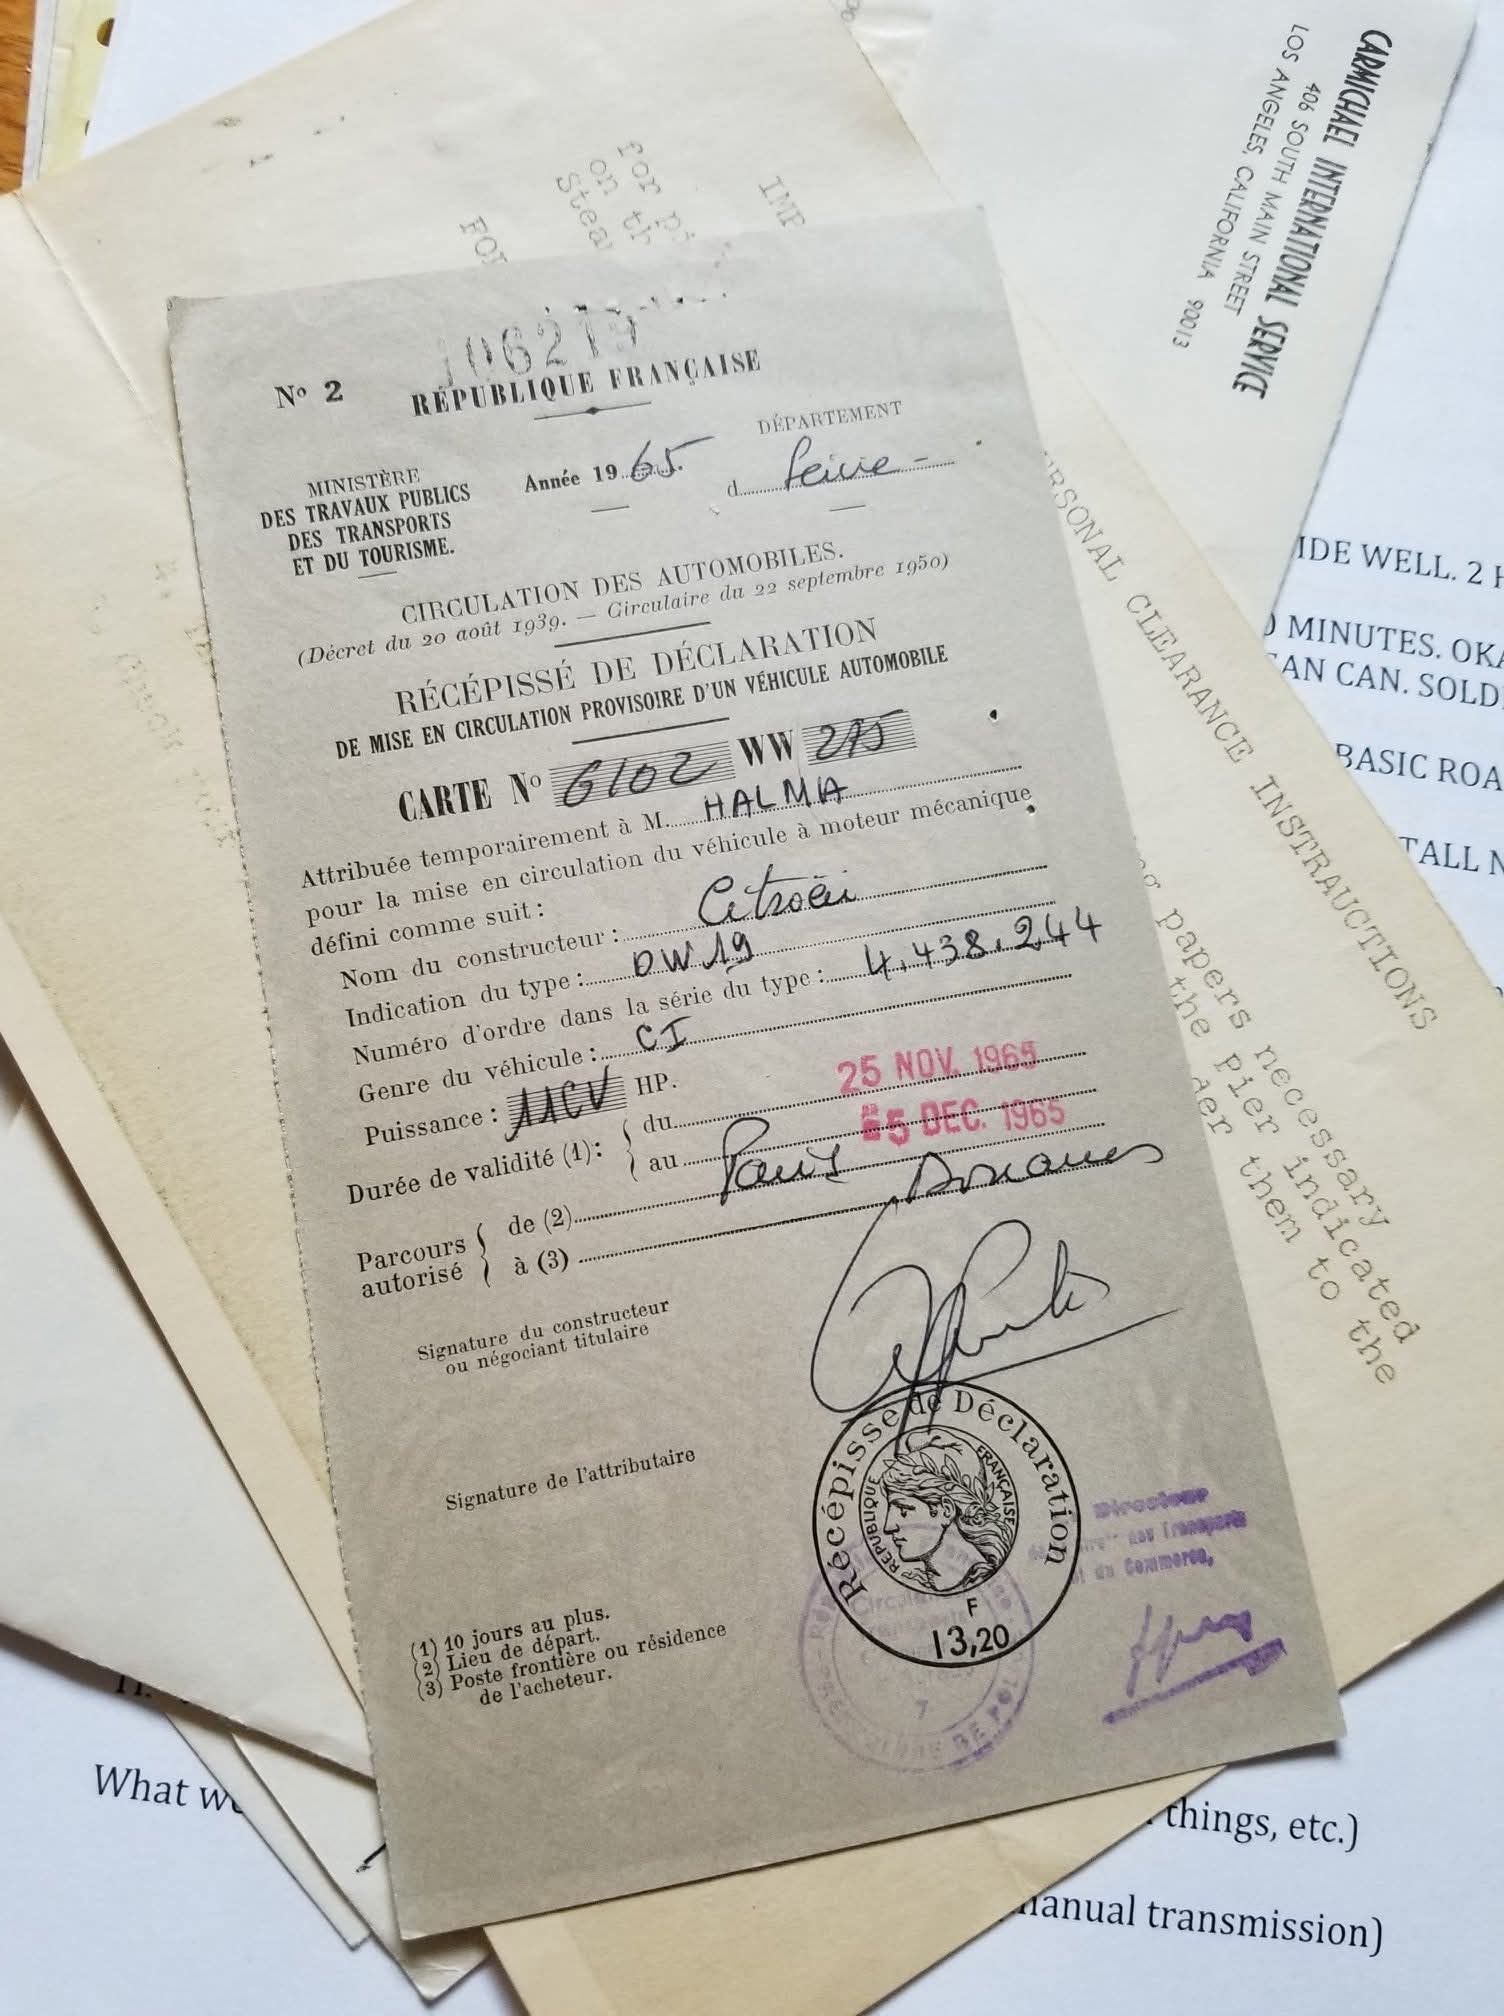 CARMICHAEL INTERNATIONAL SERVICE
406 SOUTH MAIN STREET
LOS ANGELES, CALIFORNIA 90013
IMP
for pi
on th
Stea
FOR
PERSONAL CLEARANCE INSTRAUCTIONS
papers necessary
the pier indicated
them to the
106219
No 2
RÉPUBLIQUE FRANÇAISE
MINISTÈRE
DES TRAVAUX PUBLICS
DES TRANSPORTS
ET DU TOURISME.
Année 1965.
DÉPARTEMENT
d Seine -
CIRCULATION DES AUTOMOBILES.
(Décret du 20 août 1939. — Circulaire du 22 septembre 1950)
RÉCÉPISSÉ DE DÉCLARATION
DE MISE EN CIRCULATION PROVISOIRE D'UN VÉHICULE AUTOMOBILE
CARTE No 6102 WW 275
Attribuée temporairement à M. HALMA
pour la mise en circulation du véhicule à moteur mécanique
défini comme suit :
Nom du constructeur : Citroën
Indication du type : DW 19
Numéro d'ordre dans la série du type : 4.438.244
Genre du véhicule : CI
Puissance : 11CV HP.
Durée de validité (1) : du 25 NOV. 1965
au 5 DEC. 1965
Parcours autorisé de (2) Paris Douanes
à (3)
Signature du constructeur
ou négociant titulaire
Signature de l'attributaire
Récépissé de Déclaration
REPUBLIQUE FRANÇAISE
F
13,20
Directeur
des Transports
du Commerce,
7
(1) 10 jours au plus.
(2) Lieu de départ.
(3) Poste frontière ou résidence
de l'acheteur.
IDE WELL. 2 H
MINUTES. OKA
AN CAN. SOLD
BASIC ROA
TALL N
What we
things, etc.)
manual transmission)